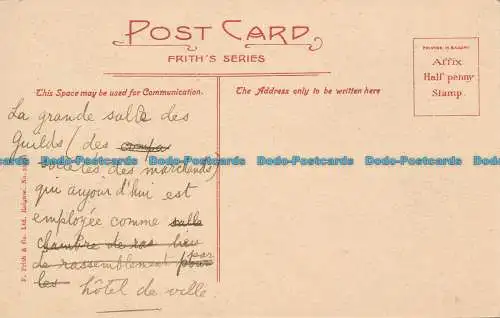 POST CARD
FRITH'S SERIES
PRINTED IN SAXONY
Affix
Half penny
Stamp.
This Space may be used for Communication.
The Address only to be written here
La grande salle des
Guilds (des compa
sociétés des marchands)
qui aujourd'hui est
employée comme salle
chambre de ras lieu
de rassemblement pour par
les hôtel de ville.
F. Frith & Co. Ltd. Reigate.
Dodo-Postcards Dodo-Postcards Dodo-Postcards Dodo-Postcards